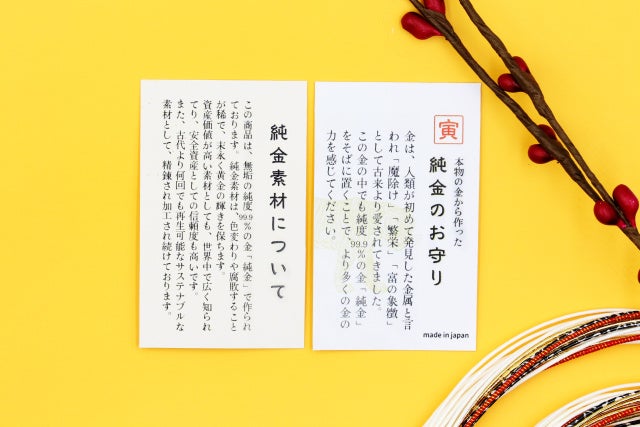 寅
本物の金から作った
純金のお守り
金は、人類が初めて発見した金属と言
われ「魔除け」「繁栄」「富の象徴」
として古来より愛されてきました。
この金の中でも純度99.9%の金「純金」
をそばに置くことで、より多くの金の
力を感じてください。
made in japan
純金素材について
この商品は、無垢の純度99.9%の金「純金」で作られ
ております。純金素材は、色変わりや腐敗すること
が稀で、末永く黄金の輝きを保ちます。
資産価値が高い素材としても、世界中で広く知られ
てり、安全資産としての信頼度も高いです。
また、古代より何回でも再生可能なサステナブルな
素材として、精錬され加工され続けております。